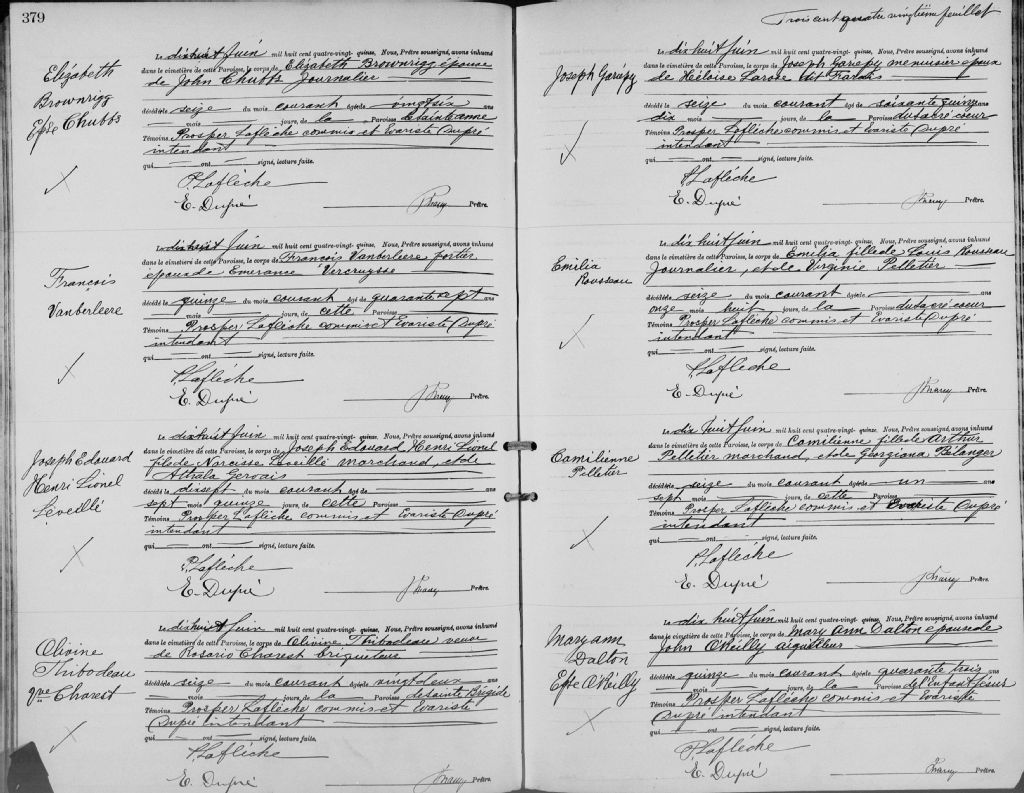 379
Elizabeth
Brownrigg
Epse Chubbs
Le dixhuit Juin mil huit cent quatre-vingt- quinze, Nous, Prêtre soussigné, avons inhumé
dans le cimetière de cette Paroisse, le corps de Elizabeth Brownrigg épouse
de John Chubbs Journalier
décédé le seize du mois courant âgé de vingtsix ans
mois jours, de la Paroisse de Sainte Anne
Témoins Prosper Laflèche commis et Evariste Dupré
intendant
qui ont signé, lecture faite.
P. Laflèche
E. Dupré
Prêtre.
François
Vanberleere
Le dixhuit Juin mil huit cent quatre-vingt- quinze, Nous, Prêtre soussigné, avons inhumé
dans le cimetière de cette Paroisse, le corps de François Vanberleere portier
époux de Emerance Vercruysse
décédé le quinze du mois courant âgé de quarante sept ans
mois jours, de cette Paroisse
Témoins Prosper Laflèche commis et Evariste Dupré
intendant
qui ont signé, lecture faite.
P. Laflèche
E. Dupré
Prêtre.
Joseph Edouard
Henri Lionel
Leveillé
Le dixhuit Juin mil huit cent quatre-vingt- quinze, Nous, Prêtre soussigné, avons inhumé
dans le cimetière de cette Paroisse, le corps de Joseph Edouard Henri Lionel
fils de Narcisse Leveillé marchand, et de
Gervais
décédé le dixsept du mois courant âgé de ans
sept mois quinze jours, de cette Paroisse
Témoins Prosper Laflèche commis et Evariste Dupré
intendant
qui ont signé, lecture faite.
P. Laflèche
E. Dupré
Prêtre.
Olivine
Thibodeau
Vve Charest
Le dixhuit Juin mil huit cent quatre-vingt- quinze, Nous, Prêtre soussigné, avons inhumé
dans le cimetière de cette Paroisse, le corps de Olivine Thibodeau veuve
de Rosario Charest briqueteur
décédé le seize du mois courant âgé de vingtdeux ans
mois jours, de la Paroisse de sainte Brigide
Témoins Prosper Laflèche commis et Evariste
Dupré intendant
qui ont signé, lecture faite.
P. Laflèche
E. Dupré
Prêtre.
Trois cent quatre vingtième feuillet
Joseph Gariépy
Le dix huit Juin mil huit cent quatre-vingt- quinze, Nous, Prêtre soussigné, avons inhumé
dans le cimetière de cette Paroisse, le corps de Joseph Gariépy menuisier époux
de Héloise Larose
décédé le seize du mois courant âgé de soixante quinze ans
dix mois jours, de la Paroisse du sacré coeur
Témoins Prosper Laflèche commis et Evariste Dupré
intendant
qui ont signé, lecture faite.
P. Laflèche
E. Dupré
Prêtre.
Emilia
Rousseau
Le dix huit Juin mil huit cent quatre-vingt- quinze, Nous, Prêtre soussigné, avons inhumé
dans le cimetière de cette Paroisse, le corps de Emilia fille de Louis Rousseau
Journalier, et de Virginie Pelletier
décédé le seize du mois courant âgé de ans
onze mois huit jours, de la Paroisse du sacré coeur
Témoins Prosper Laflèche commis et Evariste Dupré
intendant
qui ont signé, lecture faite.
P. Laflèche
E. Dupré
Prêtre.
Camilienne
Pelletier
Le dix huit Juin mil huit cent quatre-vingt- quinze, Nous, Prêtre soussigné, avons inhumé
dans le cimetière de cette Paroisse, le corps de Camilienne fille de Arthur
Pelletier marchand, et de Georgiana Belanger
décédé le seize du mois courant âgé de un ans
sept mois jours, de cette Paroisse
Témoins Prosper Laflèche commis et Evariste Dupré
intendant
qui ont signé, lecture faite.
P. Laflèche
E. Dupré
Prêtre.
Mary ann
Dalton
Epse O'Reilly
Le dix huit Juin mil huit cent quatre-vingt- quinze, Nous, Prêtre soussigné, avons inhumé
dans le cimetière de cette Paroisse, le corps de Mary Ann Dalton épouse de
John O'Reilly aiguilleur
décédé le quinze du mois courant âgé de quarante trois ans
mois jours, de la Paroisse de l'Enfant Jésus
Témoins Prosper Laflèche commis et Evariste
Dupré intendant
qui ont signé, lecture faite.
P. Laflèche
E. Dupré
Prêtre.